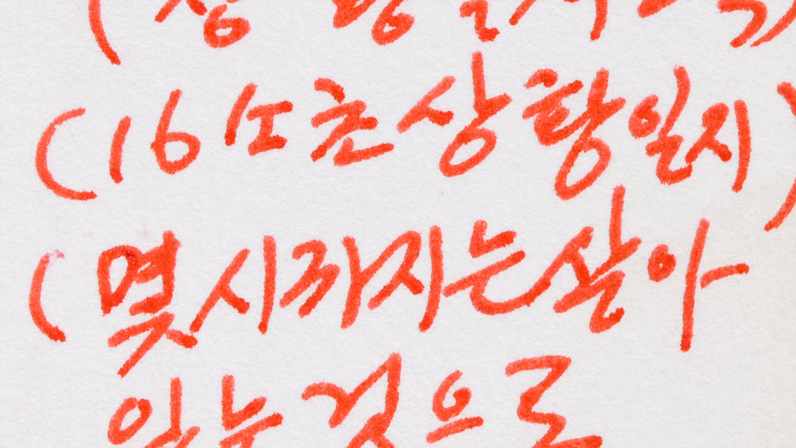 (16 노초 상황일지)
(몇시까지는 살아
있는 것으로